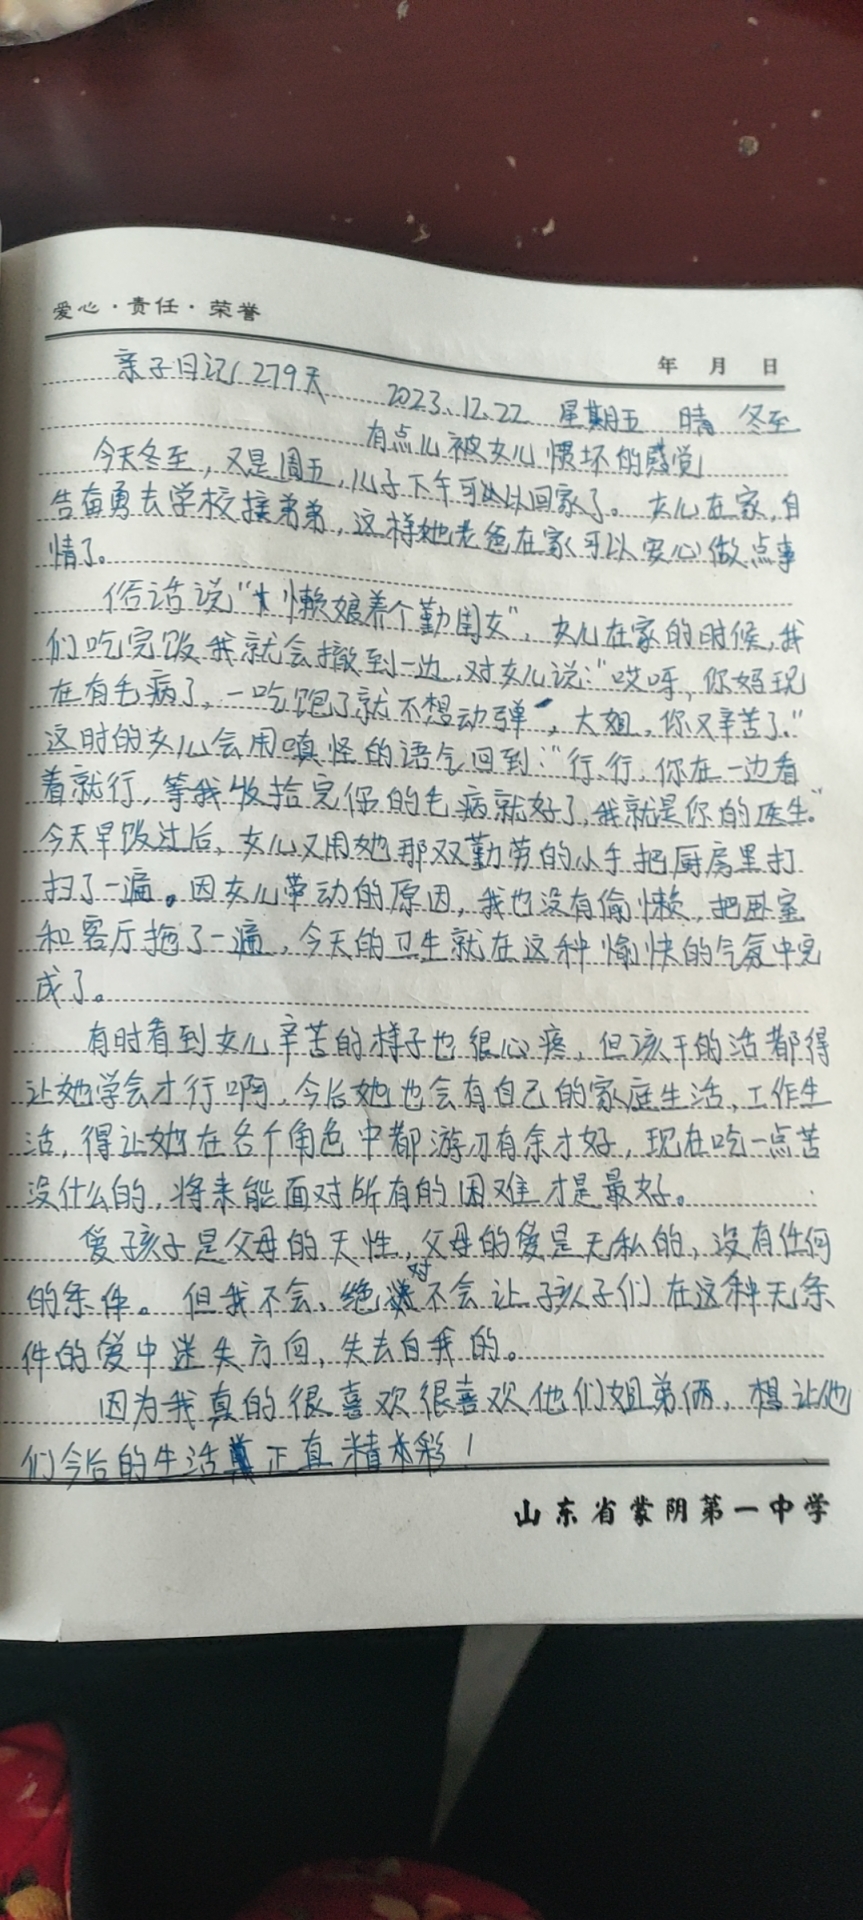 爱心·责任·荣誉
年 月 日
亲子日记(279天 2023.12.22 星期五 晴 冬至
有点儿被女儿惯坏的感觉
今天冬至，又是周五，儿子下午可以回家了。女儿在家，自
告奋勇去学校接弟弟，这样她老爸在家可以安心做点事
情了。
俗话说“懒娘养个勤闺女”，女儿在家的时候，我
们吃完饭我就会撤到一边，对女儿说：“哎呀，你妈现
在有毛病了，一吃饱了就不想动弹，大姐，你又辛苦了。”
这时的女儿会用嗔怪的语气回到：“行、行，你在一边看
着就行，等我收拾完你的毛病就好了，我就是你的医生。”
今天早饭过后，女儿又用她那双勤劳的小手把厨房里打
扫了一遍。因女儿带动的原因，我也没有偷懒，把卧室
和客厅拖了一遍，今天的卫生就在这种愉快的气氛中完
成了。
有时看到女儿辛苦的样子也很心疼，但该干的活都得
让她学会才行啊，今后她也会有自己的家庭生活、工作生
活，得让她在各个角色中都游刃有余才好，现在吃一点苦
没什么的，将来能面对所有的困难才是最好。
爱孩子是父母的天性，父母的爱是无私的，没有任何
的条件。但我不会、绝对不会让孩子们在这种无条
件的爱中迷失方向，失去自我的。
因为我真的很喜欢很喜欢他们姐弟俩，想让他
们今后的生活真正直精彩！
山东省蒙阴第一中学